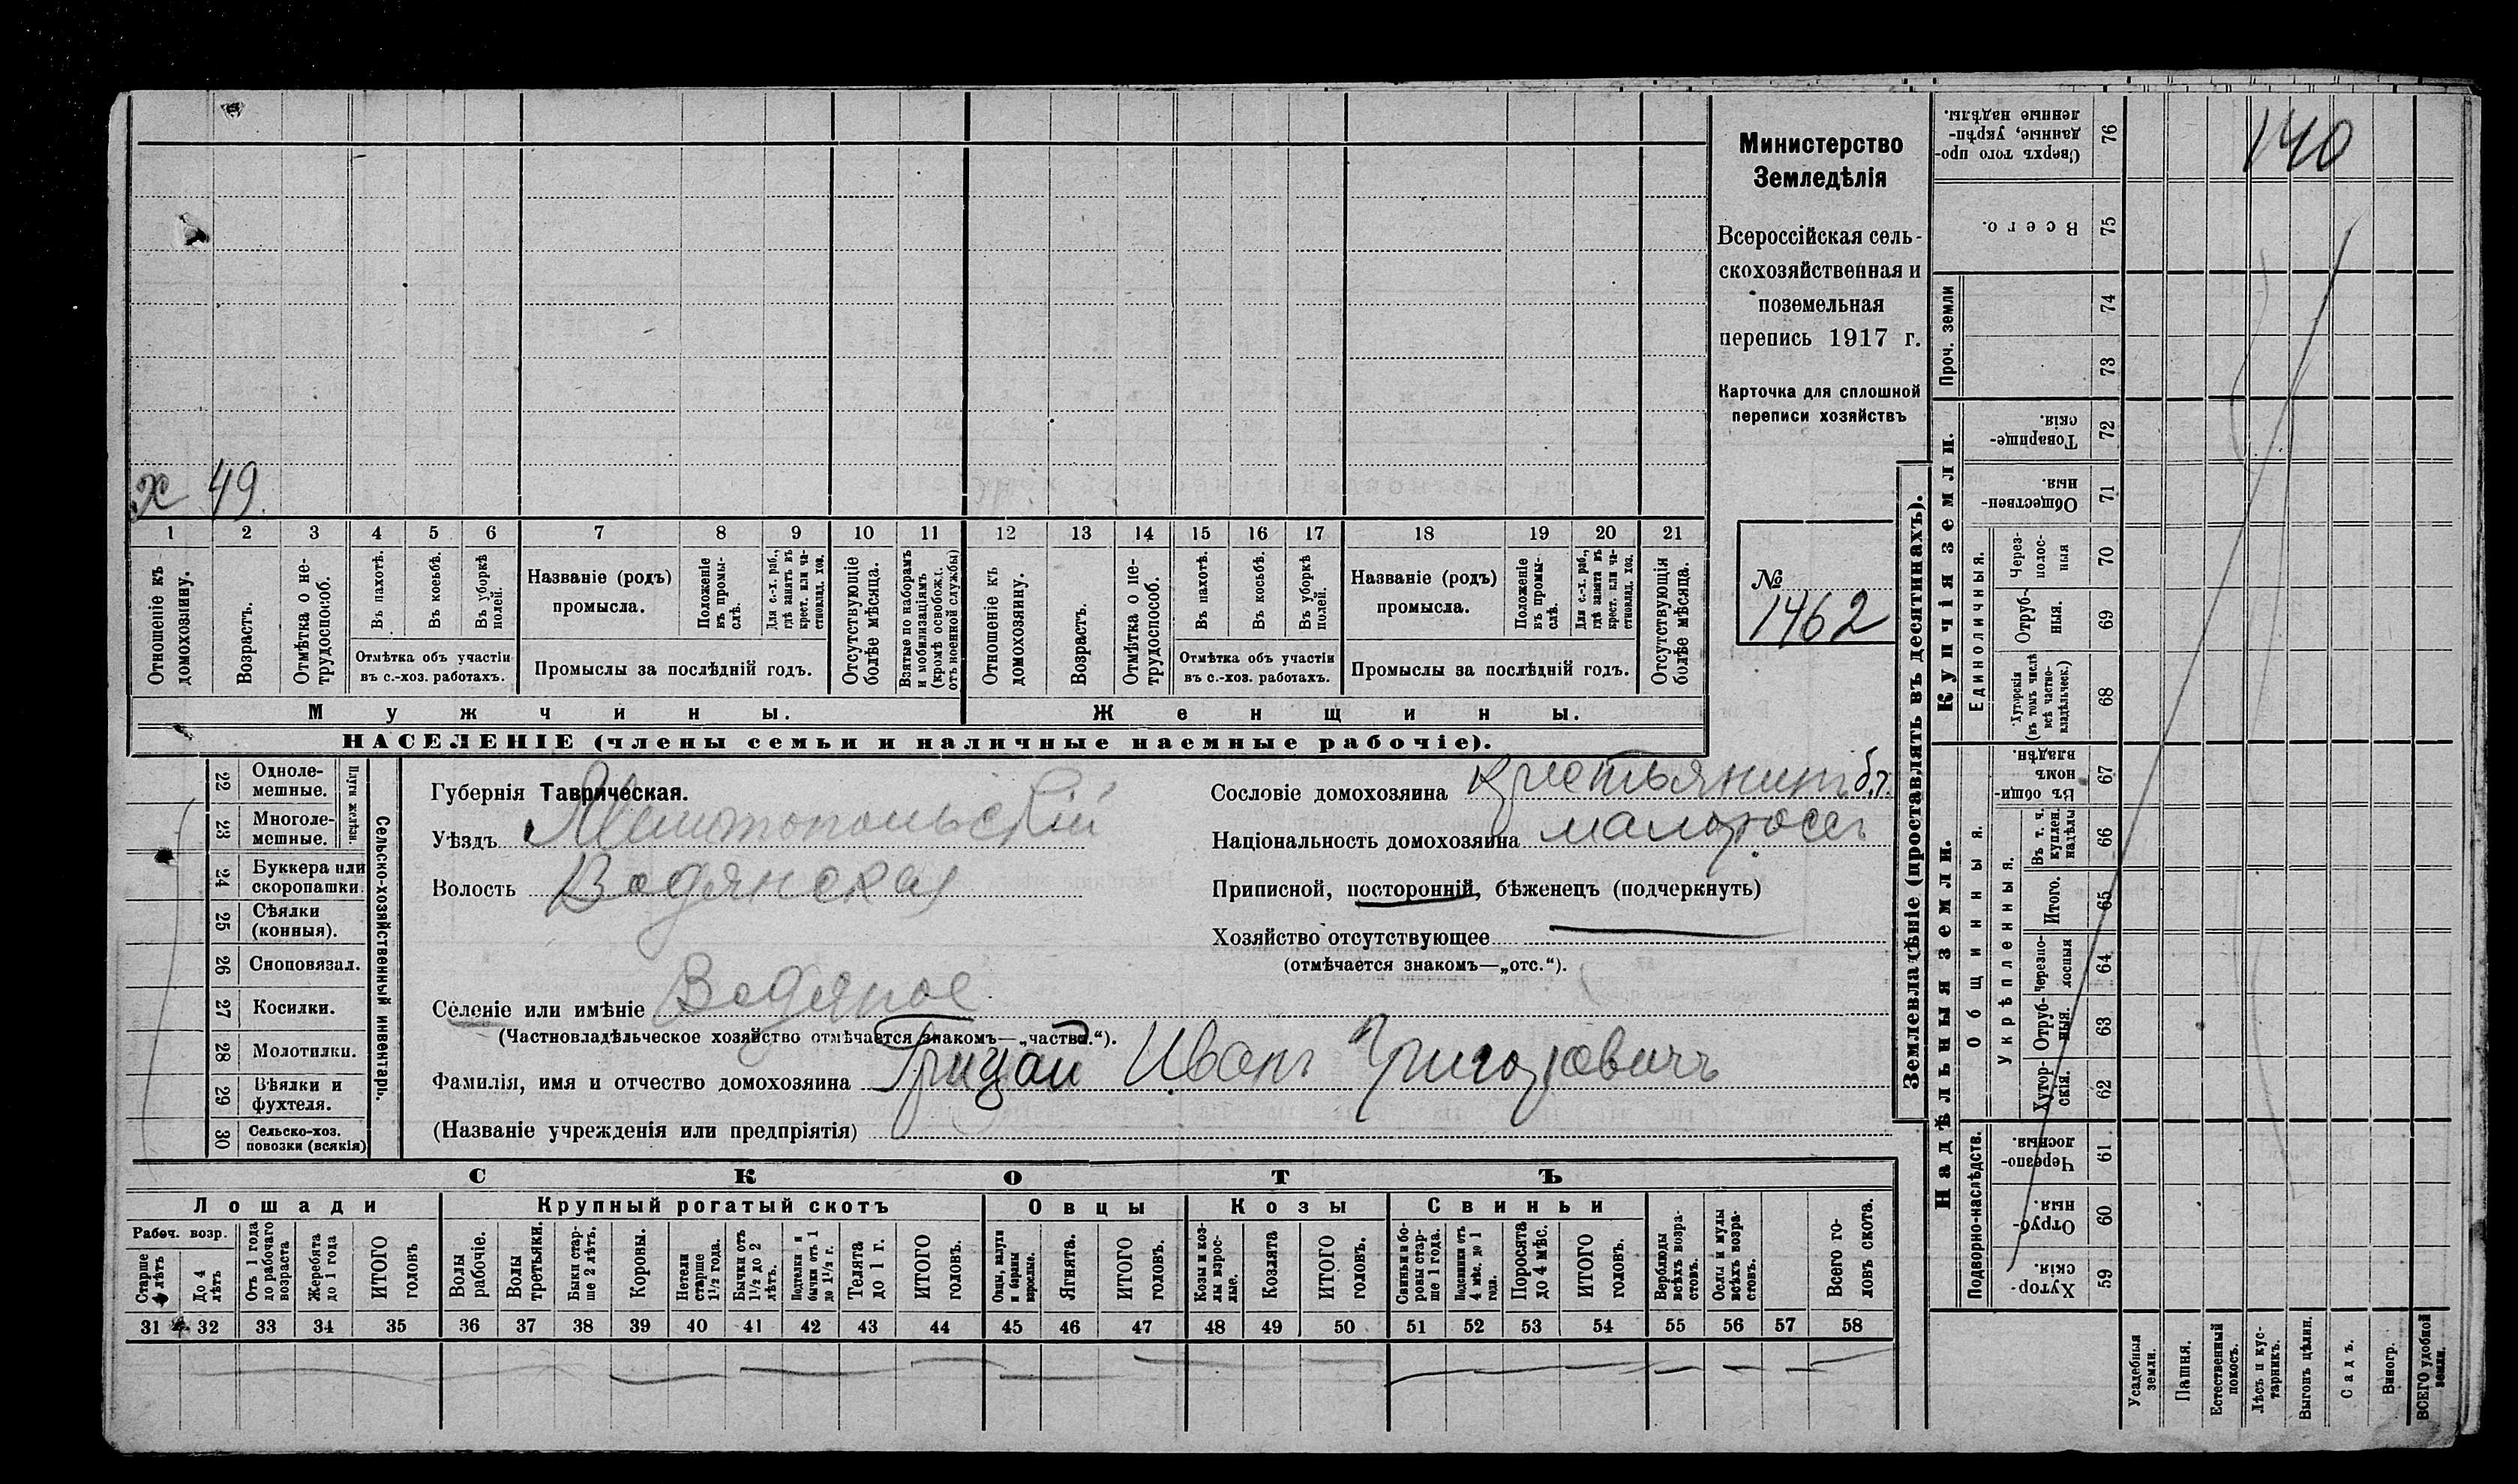 Министерство
Земледѣлія
Всероссійская сель-
скохозяйственная и
поземельная
перепись 1917 г.
Карточка для сплошной
переписи хозяйствъ
№
1462
140
х 49
1 2 3 4 5 6 7 8 9 10 11 12 13 14 15 16 17 18 19 20 21
Отношеніе къ домохозяину.
Возрастъ.
Отмѣтка о не-
трудоспособ.
Въ пахотѣ.
Въ косьбѣ.
Въ уборкѣ полей.
Отмѣтка объ участіи
въ с.-хоз. работахъ.
Названіе (родъ)
промысла.
Положеніе
въ промы-
слѣ.
Для с.-х. раб.,
гдѣ занятъ въ
крест. или ча-
стновлад. хоз.
Промыслы за послѣдній годъ.
Отсутствующіе
болѣе мѣсяца.
Взятые по наборамъ
и мобилизаціямъ
(кромѣ освобожд.
отъ военной службы)
Отношеніе къ
домохозяину.
Возрастъ.
Отмѣтка о не-
трудоспособ.
Въ пахотѣ.
Въ косьбѣ.
Въ уборкѣ полей.
Отмѣтка объ участіи
въ с.-хоз. работахъ.
Названіе (родъ)
промысла.
Положеніе
въ промы-
слѣ.
Для с.-х. раб.,
гдѣ занята въ
крест. или ча-
стновлад. хоз.
Промыслы за послѣдній годъ.
Отсутствующія
болѣе мѣсяца.
Мужчины.
Женщины.
НАСЕЛЕНІЕ (члены семьи и наличные наемные рабочіе).
Сельско-хозяйственный инвентарь.
Плуги желѣзн.
22 Одноле-
мешные.
23 Многоле-
мешные.
24 Буккера или
скоропашки.
25 Сѣялки
(конныя).
26 Сноповязал.
27 Косилки.
28 Молотилки.
29 Вѣялки и
фухтеля.
30 Сельско-хоз.
повозки (всякія)
Губернія Таврическая.
Уѣздъ Мелитопольскій
Волость Водянская
Селеніе или имѣніе Водяное
(Частновладѣльческое хозяйство отмѣчается знакомъ—„частв.“).
Фамилія, имя и отчество домохозяина Грицай Иванъ Григоровичъ
(Названіе учрежденія или предпріятія)
Сословіе домохозяина крестьянинъ б.з.
Національность домохозяина малороссъ
Приписной, посторонній, бѣженецъ (подчеркнуть)
Хозяйство отсутствующее
(отмѣчается знакомъ—„отс.“).
СКОТЪ
Лошади
Крупный рогатый скотъ
Овцы
Козы
Свиньи
Рабоч. возр.
Старше
4 лѣтъ
До 4
лѣтъ
Отъ 1 года
до рабочаго
возраста
Жеребята
до 1 года
ИТОГО
головъ
Волы
рабочіе.
Волы
третьяки.
Быки стар-
ше 2 лѣтъ.
Коровы.
Нетели
старше
1½ года.
Бычки отъ
1½ до 2
лѣтъ.
Подтелки и
бычки отъ 1
до 1½ г.
Телята
до 1 г.
ИТОГО
головъ.
Овцы, валухи
и бараны
взрослые.
Ягнята.
ИТОГО
головъ.
Козы и коз-
лы взрос-
лые.
Козлята
ИТОГО
головъ.
Свиньи и бо-
ровы стар-
ше 1 года.
Подсвинки отъ
4 мѣс. до 1
года.
Поросята
до 4 мѣс.
ИТОГО
головъ.
Верблюды
всѣхъ возра-
стовъ.
Ослы и мулы
всѣхъ возра-
стовъ.
Всего го-
ловъ скота.
31 32 33 34 35 36 37 38 39 40 41 42 43 44 45 46 47 48 49 50 51 52 53 54 55 56 57 58
Землевладѣніе (проставлять въ десятинахъ).
Купчія земли.
Надѣльныя земли.
Проч. земли
Единоличныя.
Общинныя.
Укрѣпленныя.
Подворно-наслѣдств.
76 Сверхъ того про-
данные, укрѣп-
ленные надѣлы.
75 Всего.
74
73
72 Товарище-
скія
71 Обществен-
ныя.
70 Через-
полос-
ныя
69 Отруб-
ныя.
68 Хуторскія
(въ томъ числѣ
всѣ частно-
владѣльческ.)
67 Въ общи-
номъ
владѣн.
66 Въ т. ч.
куплен.
надѣлы
65 Итого.
64 Черезпо-
лосныя
63 Отруб-
ныя.
62 Хутор-
скія.
61 Черезпо-
лосныя.
60 Отруб-
ныя.
59 Хутор-
скія.
Усадебныя
земли.
Пашня.
Естественный
покосъ.
Лѣсъ и кус-
тарникъ.
Выгонъ цѣлин.
Садъ.
Виногр.
ВСЕГО удобной
земли.